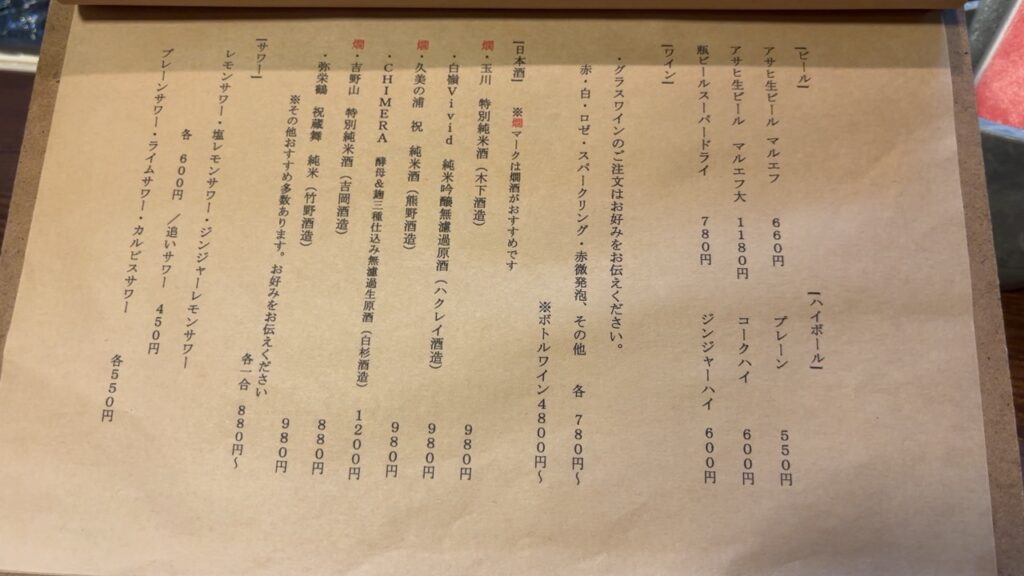 【ビール】
アサヒ生ビール マルエフ 660円
アサヒ生ビール マルエフ大 1180円
瓶ビールスーパードライ 780円
【ハイボール】
プレーン 550円
コークハイ 600円
ジンジャーハイ 600円
【ワイン】
・グラスワインのご注文はお好みをお伝えください。
赤・白・ロゼ・スパークリング・赤微発泡、その他 各 780円～
※ボトルワイン4800円～
【日本酒】 ※燗マークは燗酒がおすすめです
燗・玉川 特別純米酒（木下酒造） 980円
・白嶺Vivid 純米吟醸無濾過原酒（ハクレイ酒造） 980円
燗・久美の浦 祝 純米酒（熊野酒造） 980円
・CHIMERA 酵母&麹三種仕込み無濾過生原酒（白杉酒造） 1200円
燗・吉野山 特別純米酒（吉岡酒造） 880円
・弥栄鶴 祝蔵舞 純米（竹野酒造） 980円
※その他おすすめ多数あります。お好みをお伝えください
各一合 880円～
【サワー】
レモンサワー・塩レモンサワー・ジンジャーレモンサワー
各 600円 ／追いサワー 450円
プレーンサワー・ライムサワー・カルピスサワー
各550円